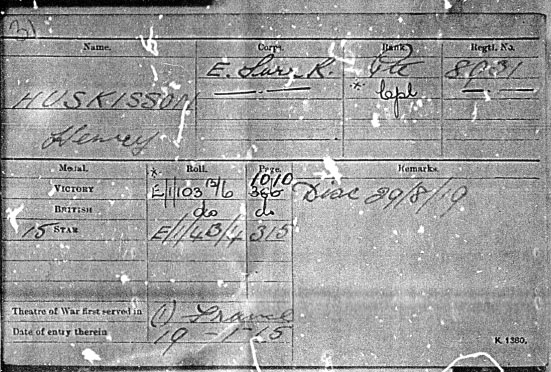 3)
Name. Corps. Rank. Regtl. No.
E. Surr. R. Pte 8031
HUSKISSON * Cpl
Henry
Medal. * Roll. Page. Remarks.
1010
VICTORY E/1/103 B6 366 Disc 29/8/19
BRITISH do do
15 STAR E/1/4B/4 315
Theatre of War first served in (1) France
Date of entry therein 19-1-15
K 1380.